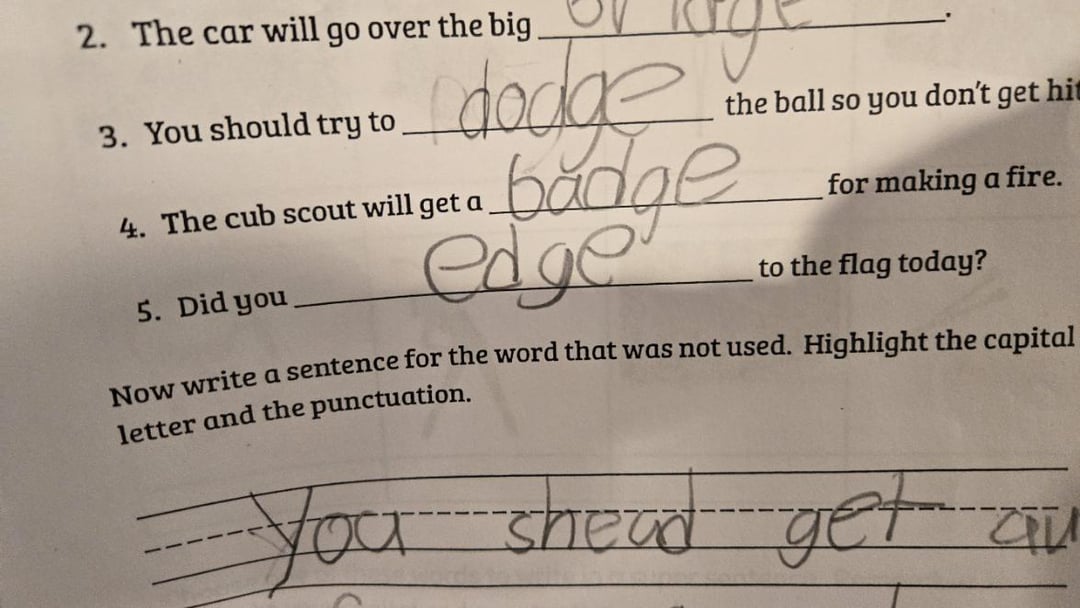 2. The car will go over the big bridge.
3. You should try to dodge the ball so you don't get hit
4. The cub scout will get a badge for making a fire.
5. Did you edge to the flag today?
Now write a sentence for the word that was not used. Highlight the capital
letter and the punctuation.
You shead get au